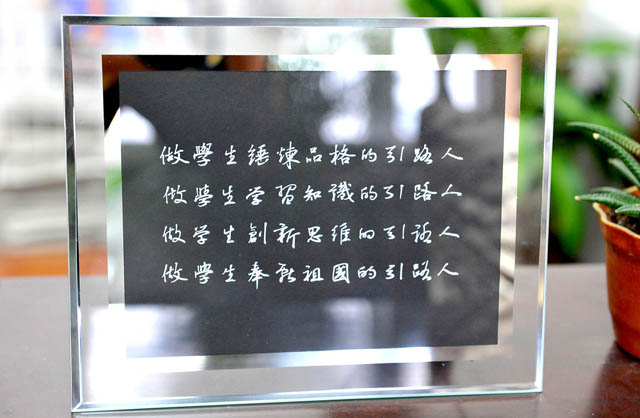 做學生锤煉品格的引路人
做學生学習知識的引路人
做学生創新思维的引路人
做學生奉献祖國的引路人